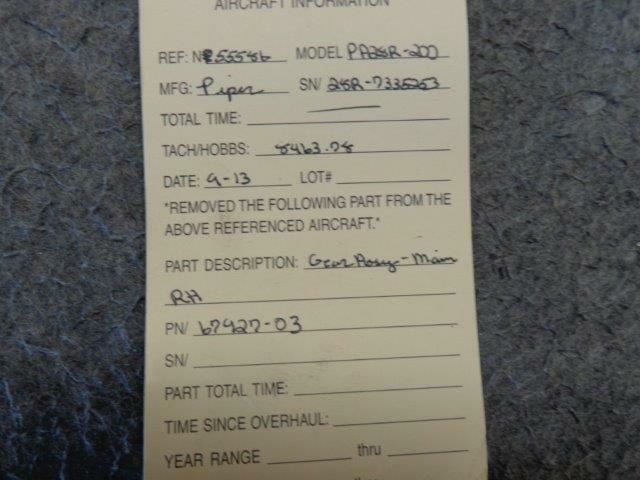 AIRCRAFT INFORMATION
REF: N55586 MODEL PA28R-200
MFG: Piper SN/ 28R-7335253
TOTAL TIME:
TACH/HOBBS: 8463.78
DATE: 9-13 LOT#
"REMOVED THE FOLLOWING PART FROM THE
ABOVE REFERENCED AIRCRAFT."
PART DESCRIPTION: Gear Assy - Main
RH
PN/ 67927-03
SN/
PART TOTAL TIME:
TIME SINCE OVERHAUL:
YEAR RANGE thru